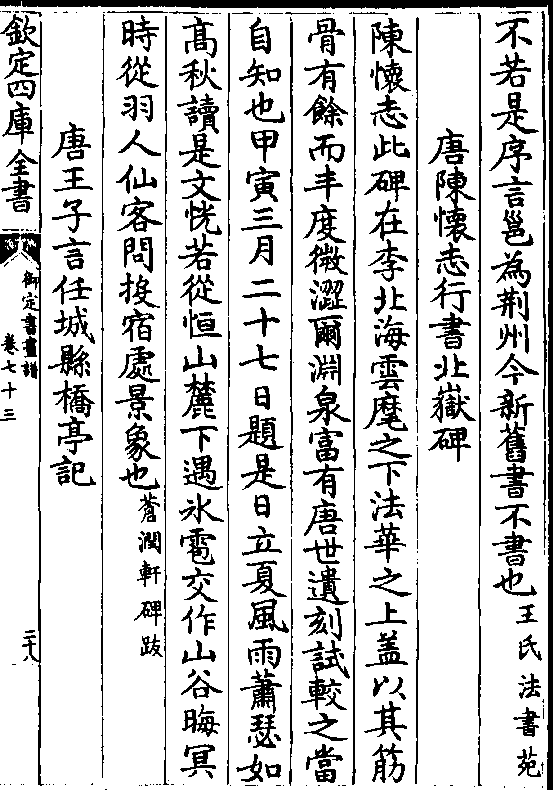 不若是序言邕為荆州今新舊書不書也王氏法書苑
唐陳懷志行書北嶽碑
陳懷志此碑在李北海雲麾之下法華之上盖以其筋
骨有餘而丰度微澀爾淵泉富有唐世遺刻試較之當
自知也甲寅三月二十七日題是日立夏風雨蕭瑟如
髙秋讀是文恍若從恒山麓下遇氷雹交作山谷晦冥
時從羽人仙客問投宿處景象也蒼潤軒碑跋
唐王子言任城縣橋亭記
欽定四庫全書
御定書畫譜
卷七十三
二十八